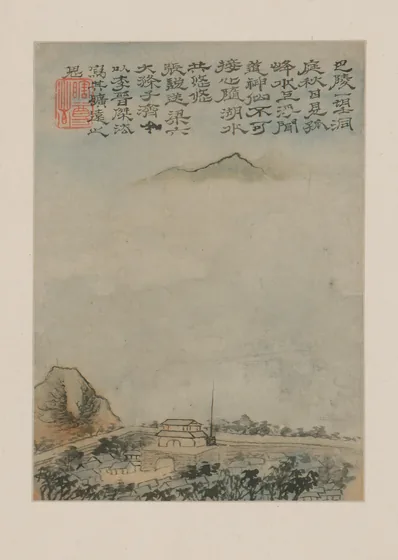 巴陵一望洞
庭秋日見孤
峰水上浮聞
道神仙不可
接心隨湖水
共悠悠
張說送梁六
大滌子濟
以李晉傑法
寫其曠遠之